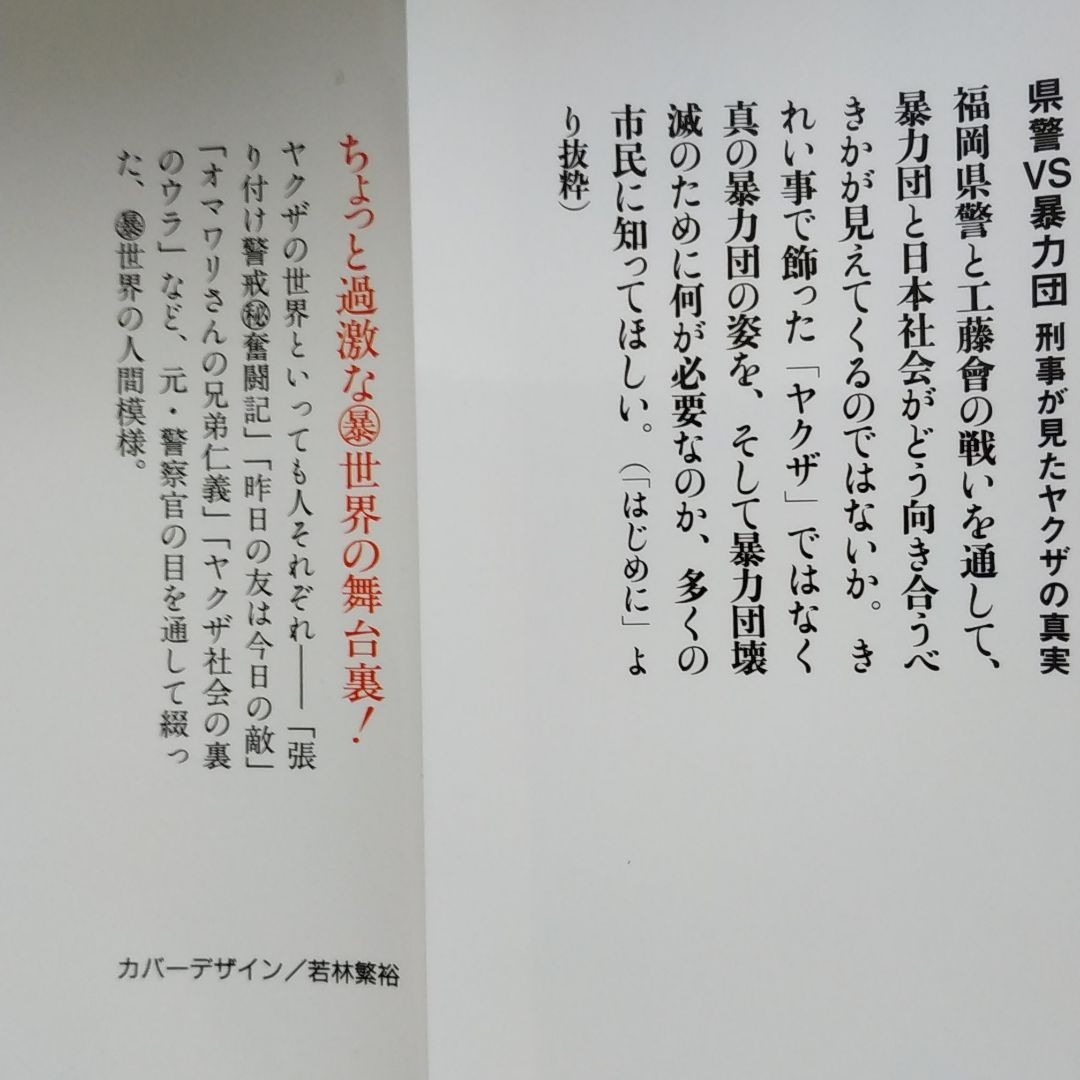 県警VS暴力団 刑事が見たヤクザの真実
福岡県警と工藤會の戦いを通して、
暴力団と日本社会がどう向き合うべ
きかが見えてくるのではないか。き
れい事で飾った「ヤクザ」ではなく
真の暴力団の姿を、そして暴力団壊
滅のために何が必要なのか、多くの
市民に知ってほしい。（「はじめに」よ
り抜粋）
ちょっと過激な㊙世界の舞台裏！
ヤクザの世界といっても人それぞれ――「張
り付け警戒㊙奮闘記」「昨日の友は今日の敵」
「オマワリさんの兄弟仁義」「ヤクザ社会の裏
のウラ」など、元・警察官の目を通して綴っ
た、暴世界の人間模様。
カバーデザイン／若林繁裕